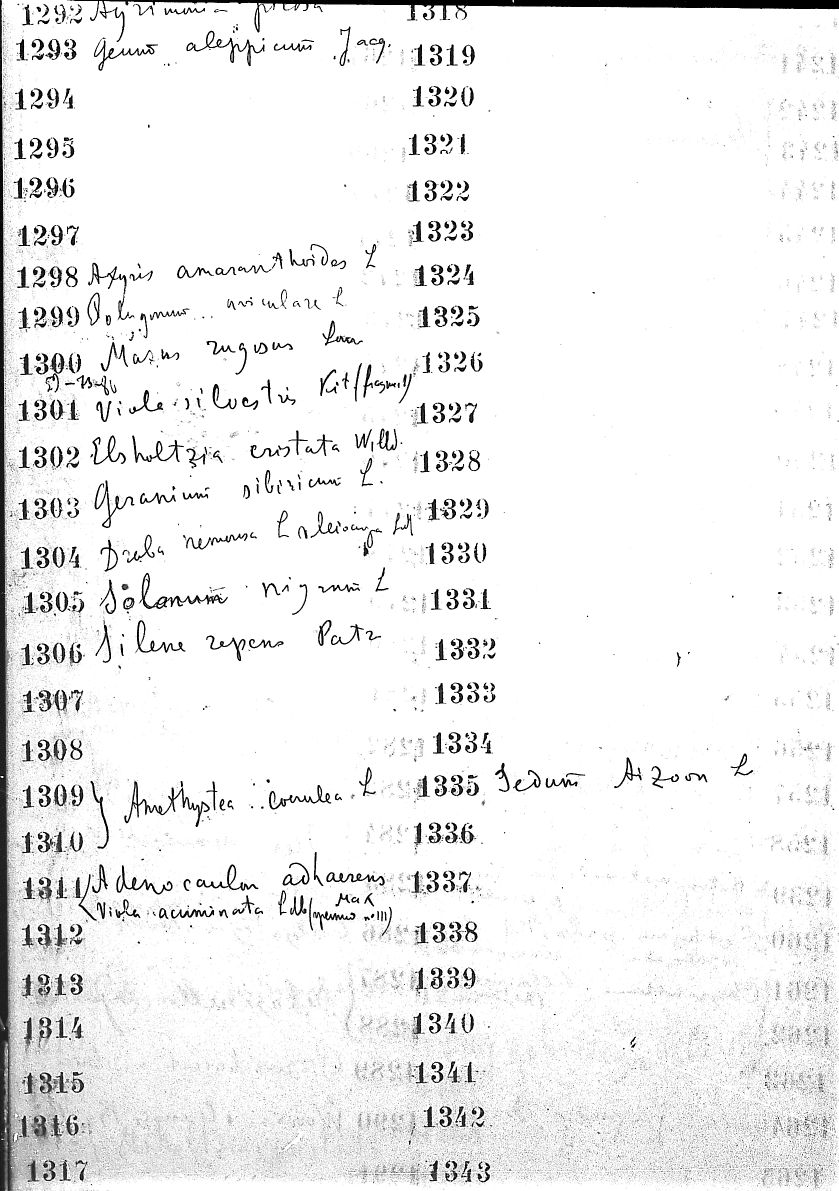 1292 Agrimonia pilosa
1293 Geum aleppicum Jacq.
1294
1295
1296
1297
1298 Axyris amaranthoides L
1299 Polygonum aviculare L
1300 Mazus rugosus Lour
1301 Viola silvestris Kit (fragment)
1302 Elsholtzia cristata Willd.
1303 Geranium sibiricum L.
1304 Draba nemorosa L leiocarpa Ldb
1305 Solanum nigrum L
1306 Silene repens Patr
1307
1308
1309 } Amethystea coerulea L
1310
1311 { Adenocaulon adhaerens Max
Viola acuminata Ldb (specimen no III)
1312
1313
1314
1315
1316
1317
1318
1319
1320
1321
1322
1323
1324
1325
1326
1327
1328
1329
1330
1331
1332
1333
1334
1335 Sedum Aizoon L
1336
1337
1338
1339
1340
1341
1342
1343